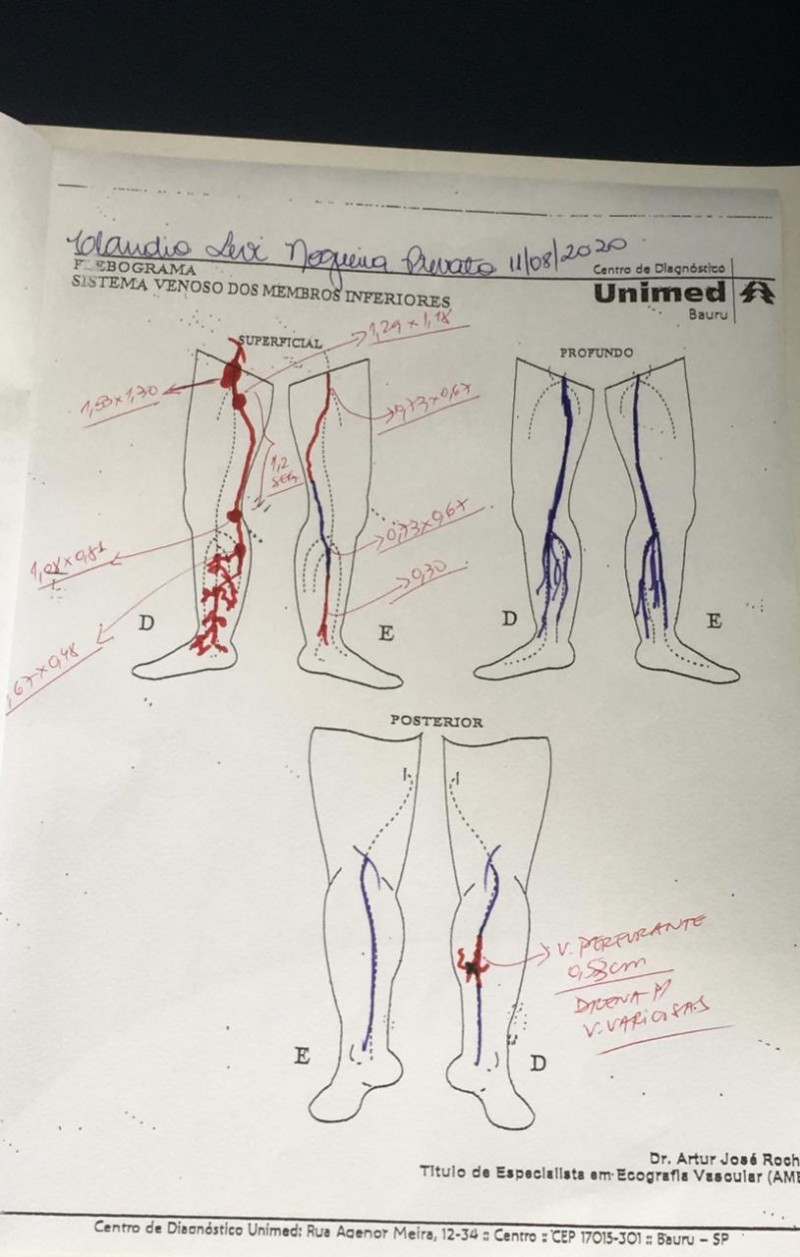 Levi Nogueira 11/08/2020
EBOGRAMA
SISTEMA VENOSO DOS MEMBROS INFERIORES
Centro de Diagnóstico
Unimed
Bauru
SUPERFICIAL
PROFUNDO
1,29 x 1,18
1,53 x 1,30
0,73 x 0,67
1,2
SEG
0,73 x 0,67
0,30
D
E
D
E
,67 x 0,48
POSTERIOR
V. PERFURANTE
0,53cm
DRENA P/
V. VARICOSAS
E
D
Dr. Artur José Roch
Título de Especialista em Ecografia Vascular (AMB
Centro de Diagnóstico Unimed: Rua Agenor Meira, 12-34 :: Centro :: CEP 17015-301 :: Bauru – SP